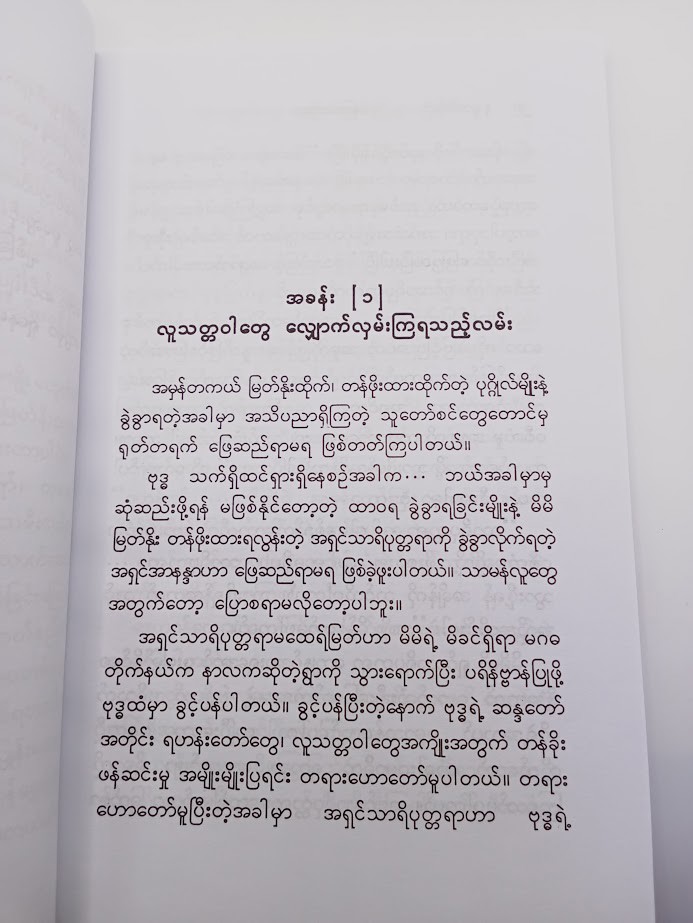 အခန်း [၁]
လူသတ္တဝါတွေ လျှောက်လှမ်းကြရသည့်လမ်း
အမှန်တကယ် မြတ်နိုးထိုက်၊ တန်ဖိုးထားထိုက်တဲ့ ပုဂ္ဂိုလ်မျိုးနဲ့
ခွဲခွာရတဲ့အခါမှာ အသိပညာရှိကြတဲ့ သူတော်စင်တွေတောင်မှ
ရုတ်တရက် ဖြေဆည်ရာမရ ဖြစ်တတ်ကြပါတယ်။
ဗုဒ္ဓ သက်ရှိထင်ရှားရှိနေစဉ်အခါက... ဘယ်အခါမှာမှ
ဆုံဆည်းဖို့ရန် မဖြစ်နိုင်တော့တဲ့ ထာဝရ ခွဲခွာရခြင်းမျိုးနဲ့ မိမိ
မြတ်နိုး တန်ဖိုးထားရလွန်းတဲ့ အရှင်သာရိပုတ္တရာကို ခွဲခွာလိုက်ရတဲ့
အရှင်အာနန္ဒာဟာ ဖြေဆည်ရာမရ ဖြစ်ခဲ့ဖူးပါတယ်။ သာမန်လူတွေ
အတွက်တော့ ပြောစရာမလိုတော့ပါဘူး။
အရှင်သာရိပုတ္တရာမထေရ်မြတ်ဟာ မိမိရဲ့ မိခင်ရှိရာ မဂဓ
တိုက်နယ်က နာလကဆိုတဲ့ရွာကို သွားရောက်ပြီး ပရိနိဗ္ဗာန်ပြုဖို့
ဗုဒ္ဓထံမှာ ခွင့်ပန်ပါတယ်။ ခွင့်ပန်ပြီးတဲ့နောက် ဗုဒ္ဓရဲ့ ဆန္ဒတော်
အတိုင်း ရဟန်းတော်တွေ၊ လူသတ္တဝါတွေအကျိုးအတွက် တန်ခိုး
ဖန်ဆင်းမှု အမျိုးမျိုးပြရင်း တရားဟောတော်မူပါတယ်။ တရား
ဟောတော်မူပြီးတဲ့အခါမှာ အရှင်သာရိပုတ္တရာဟာ ဗုဒ္ဓရဲ့